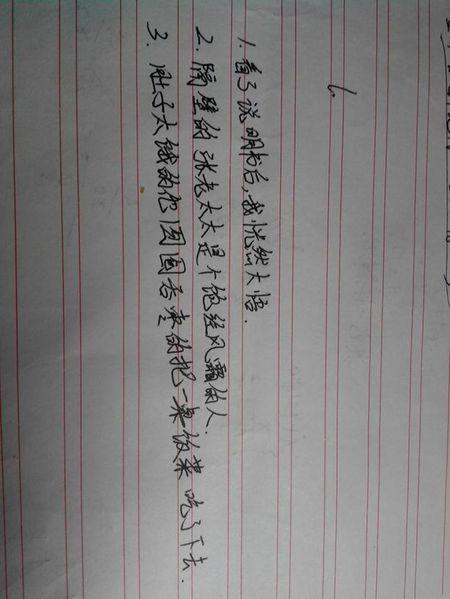 1. 看了说明书后,我恍然大悟.
2. 隔壁的张老太太是个饱经风霜的人.
3. 肚子太饿的他囫囵吞枣的把一桌饭菜吃了下去.